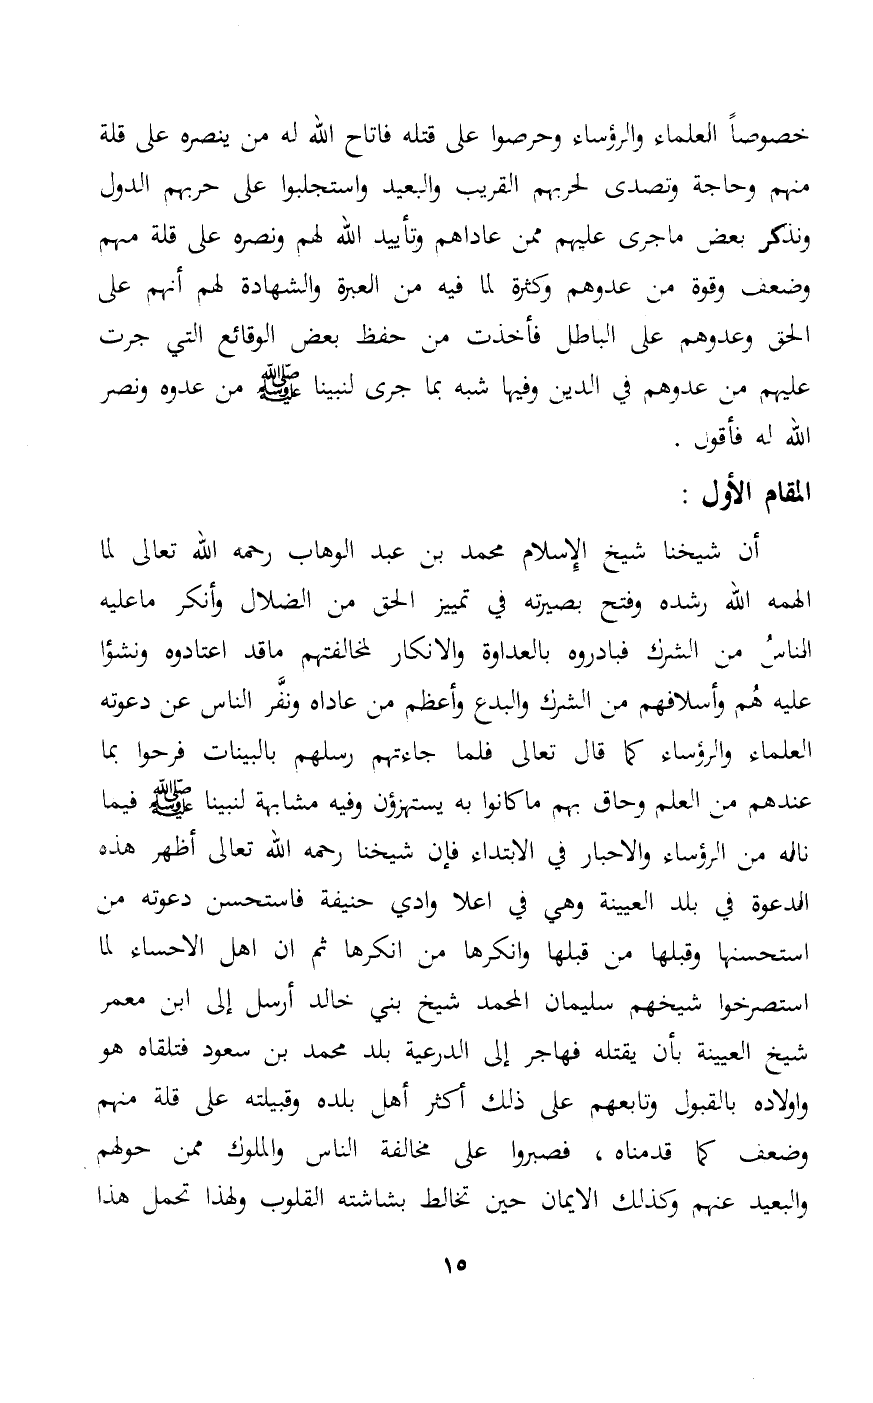 خصوصاً العلماء والرؤساء وحرصوا على قتله فاتاح الله له من ينصره على قلة
منهم وحاجة وتصدى لحربهم القريب والبعيد واستجلبوا على حربهم الدول
ونذكر بعض ماجرى عليهم ممن عاداهم وتأييد الله لهم ونصره على قلة منهم
وضعف وقوة من عدوهم وكثرة لما فيه من العبرة والشهادة لهم أنهم على
الحق وعدوهم على الباطل فأخذت من حفظ بعض الوقائع التي جرت
عليهم من عدوهم في الدين وفيها شبه بما جرى لنبينا ﷺ من عدوه ونصر
الله له فأقول .
المقام الأول :
أن شيخنا شيخ الإسلام محمد بن عبد الوهاب رحمه الله تعالى لما
الهمه الله رشده وفتح بصيرته في تمييز الحق من الضلال وأنكر ماعليه
الناسُ من الشرك فبادروه بالعداوة والانكار لمخالفتهم ماقد اعتادوه ونشؤا
عليه هُم وأسلافهم من الشرك والبدع وأعظم من عاداه ونفَّر الناس عن دعوته
العلماء والرؤساء كما قال تعالى فلما جاءتهم رسلهم بالبينات فرحوا بما
عندهم من العلم وحاق بهم ماكانوا به يستهزؤن وفيه مشابهة لنبينا ﷺ فيما
ناله من الرؤساء والاحبار في الابتداء فإن شيخنا رحمه الله تعالى أظهر هذه
الدعوة في بلد العيينة وهي في اعلا وادي حنيفة فاستحسن دعوته من
استحسنها وقبلها من قبلها وانكرها من انكرها ثم ان اهل الاحساء لما
استصرخوا شيخهم سليمان المحمد شيخ بني خالد أرسل إلى ابن معمر
شيخ العيينة بأن يقتله فهاجر إلى الدرعية بلد محمد بن سعود فتلقاه هو
واولاده بالقبول وتابعهم على ذلك أكثر أهل بلده وقبيلته على قلة منهم
وضعف كما قدمناه ، فصبروا على مخالفة الناس والملوك ممن حولهم
والبعيد عنهم وكذلك الايمان حين تخالط بشاشته القلوب ولهذا تحمل هذا
١٥